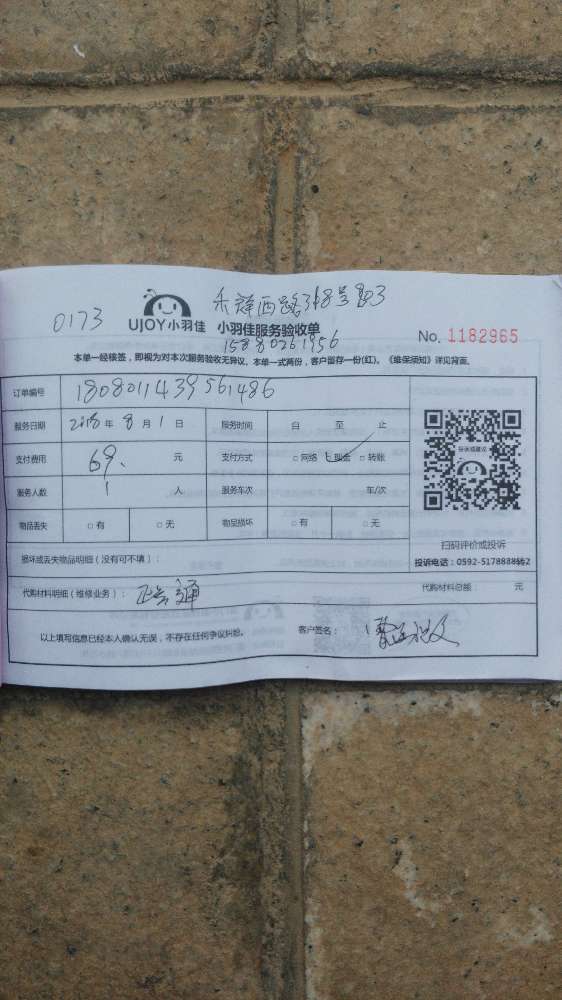 禾祥西路
0173
UJOY小羽佳 小羽佳服务验收单
No. 1182965
15880261956
本单一经核签，即视为对本次服务验收无异议。本单一式两份，客户留存一份(红)。《维保须知》详见背面。
订单编号 180801143956 1486
服务日期 2018年 8月 1日 服务时间 自 至 止
支付费用 69. 元 支付方式 □网络 □现金 □转账
服务人数 1 人 服务车次 车/次
物品丢失 □有 □无 物品损坏 □有 □无
扫码评价或投诉
投诉电话：0592-5178888转2
损坏或丢失物品明细（没有可不填）：
代购材料明细（维修业务）： 代购材料总额： 元
以上填写信息已经本人确认无误，不存在任何争议纠纷。 客户签名：